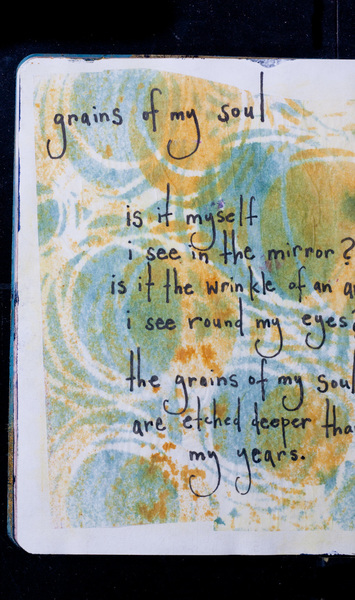 grains of my soul
is it myself
i see in the mirror?
is it the wrinkle of an
i see round my eyes?
the grains of my soul
are etched deeper
my years.